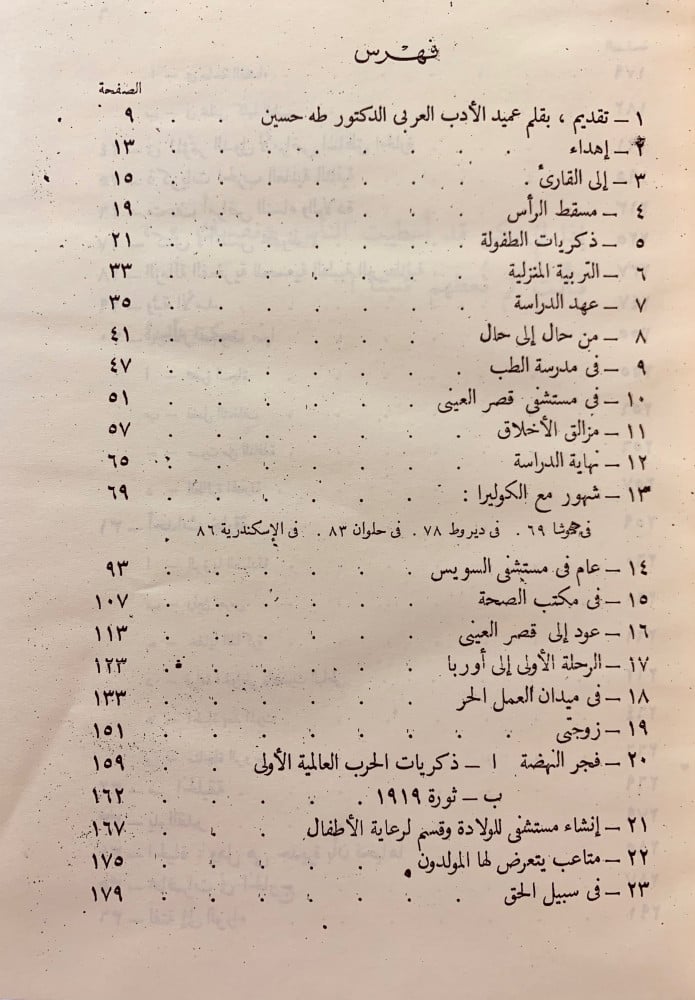 فهرس
الصفحة
١ – تقديم ، بقلم عميد الأدب العربى الدكتور طه حسين . . ٩
٢ – إهداء . . . . . . . ١٣
٣ – إلى القارئ . . . . . . . ١٥
٤ – مسقط الرأس . . . . . . ١٩
٥ – ذكريات الطفولة . . . . . . ٢١
٦ – التربية المنزلية . . . . . . ٣٣
٧ – عهد الدراسة . . . . . . ٣٥
٨ – من حال إلى حال . . . . . . ٤١
٩ – فى مدرسة الطب . . . . . . ٤٧
١٠ – فى مستشفى قصر العينى . . . . . ٥١
١١ – مزالق الأخلاق . . . . . . ٥٧
١٢ – نهاية الدراسة . . . . . . ٦٥
١٣ – شهور مع الكوليرا : . . . . . . ٦٩
فى موشا ٦٩ . فى ديروط ٧٨ . فى حلوان ٨٣ . فى الإسكندرية ٨٦
١٤ – عام فى مستشفى السويس . . . . . ٩٣
١٥ – فى مكتب الصحة . . . . . . ١٠٧
١٦ – عود إلى قصر العينى . . . . . ١١٣
١٧ – الرحلة الأولى إلى أوربا . . . . . ١٢٣
١٨ – فى ميدان العمل الحر . . . . . ١٣٣
١٩ – زوجتى . . . . . . . ١٥١
٢٠ – فجر النهضة ا – ذكريات الحرب العالمية الأولى . . ١٥٩
ب – ثورة ١٩١٩ . . . . ١٦٢
٢١ – إنشاء مستشفى للولادة وقسم لرعاية الأطفال . . . ١٦٧
٢٢ – متاعب يتعرض لها المولدون . . . . . ١٧٥
٢٣ – فى سبيل الحق . . . . . . ١٧٩